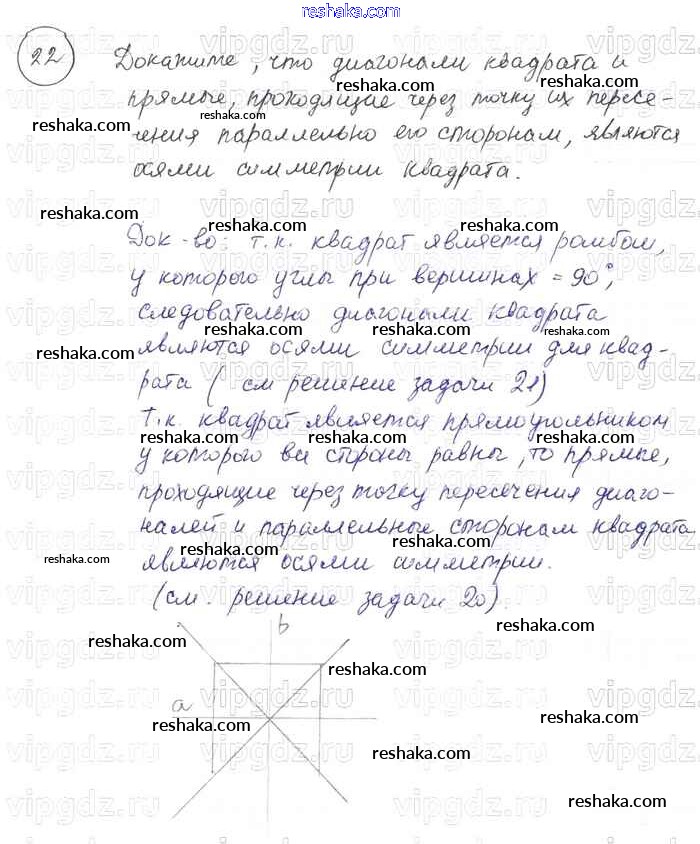 reshaka.com
22
Докажите, что диагонали квадрата и
прямые, проходящие через точку их пересе-
чения параллельно его сторонам, являются
осями симметрии квадрата.
Док-во: т.к. квадрат является ромбом,
у которого углы при вершинах = 90°,
следовательно диагонали квадрата
являются осями симметрии для квад-
рата ( см решение задачи 21)
Т.к. квадрат является прямоугольником
у которого все стороны равны, то прямые,
проходящие через точку пересечения диаго-
налей и параллельные сторонам квадрата
являются осями симметрии.
(см. решение задачи 20)
b
a